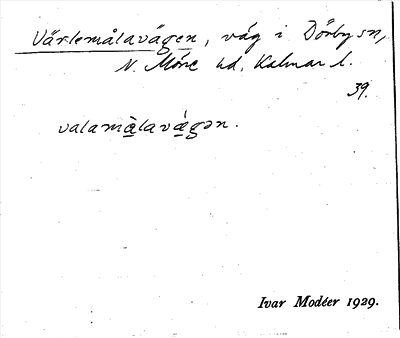 Värlemålavägen, väg i Dörby sn,
N. Möre hd, Kalmar l.
39.
valamàlavä́gən.
Ivar Modéer 1929.